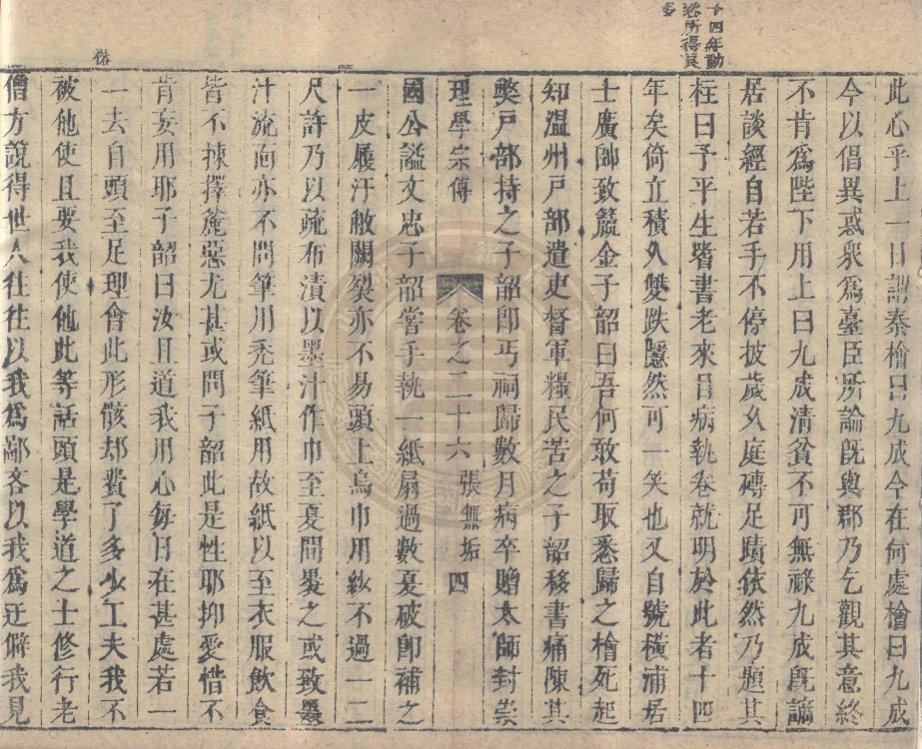 十四年動
此心乎上一日謂秦檜曰九成今在何處檜曰九成
今以倡異惑衆爲臺臣所論旣與郡乃乞觀其意終
不肯爲陛下用上曰九成清貧不可無祿九成旣謫
居談經自若手不停披歲久庭磚足蹟依然乃題其
柱曰予平生嗜書老來目病執卷就明於此者十四
年矣倚立積久雙趺隱然可一笑也又自號橫浦居
士廣帥致籯金子韶曰吾何敢苟取悉歸之檜死起
知温州戸部遣吏督軍糧民苦之子韶移書痛陳其
獘戸部持之子韶卽丐祠歸數月病卒贈太師封崇
理學宗傳
卷之二十六 張無垢 四
國公謚文忠子韶嘗手執一紙扇過數夏破卽補之
一皮履汗敝闕裂亦不易頭上烏巾用紗不過一二
尺許乃以疏布漬以墨汁作巾至夏間裹之或致墨
汁流面亦不問筆用禿筆紙用故紙以至衣服飲食
皆不揀擇麄惡尤甚或問子韶此是性耶抑愛惜不
肯妄用耶子韶曰汝且道我用心每日在甚處若一
一去自頭至足理會此形骸却費了多少工夫我不
被他使且要我使他此等話頭是學道之士修行老
僧方說得世人往往以我爲鄙吝以我爲迂僻我見